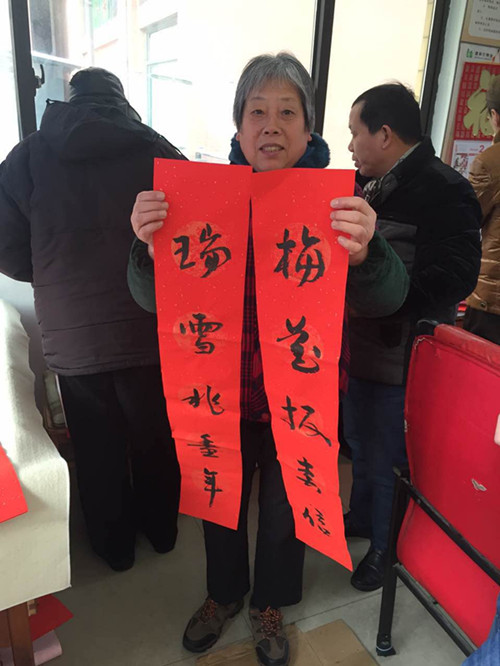 梅花报春信
瑞雪兆丰年